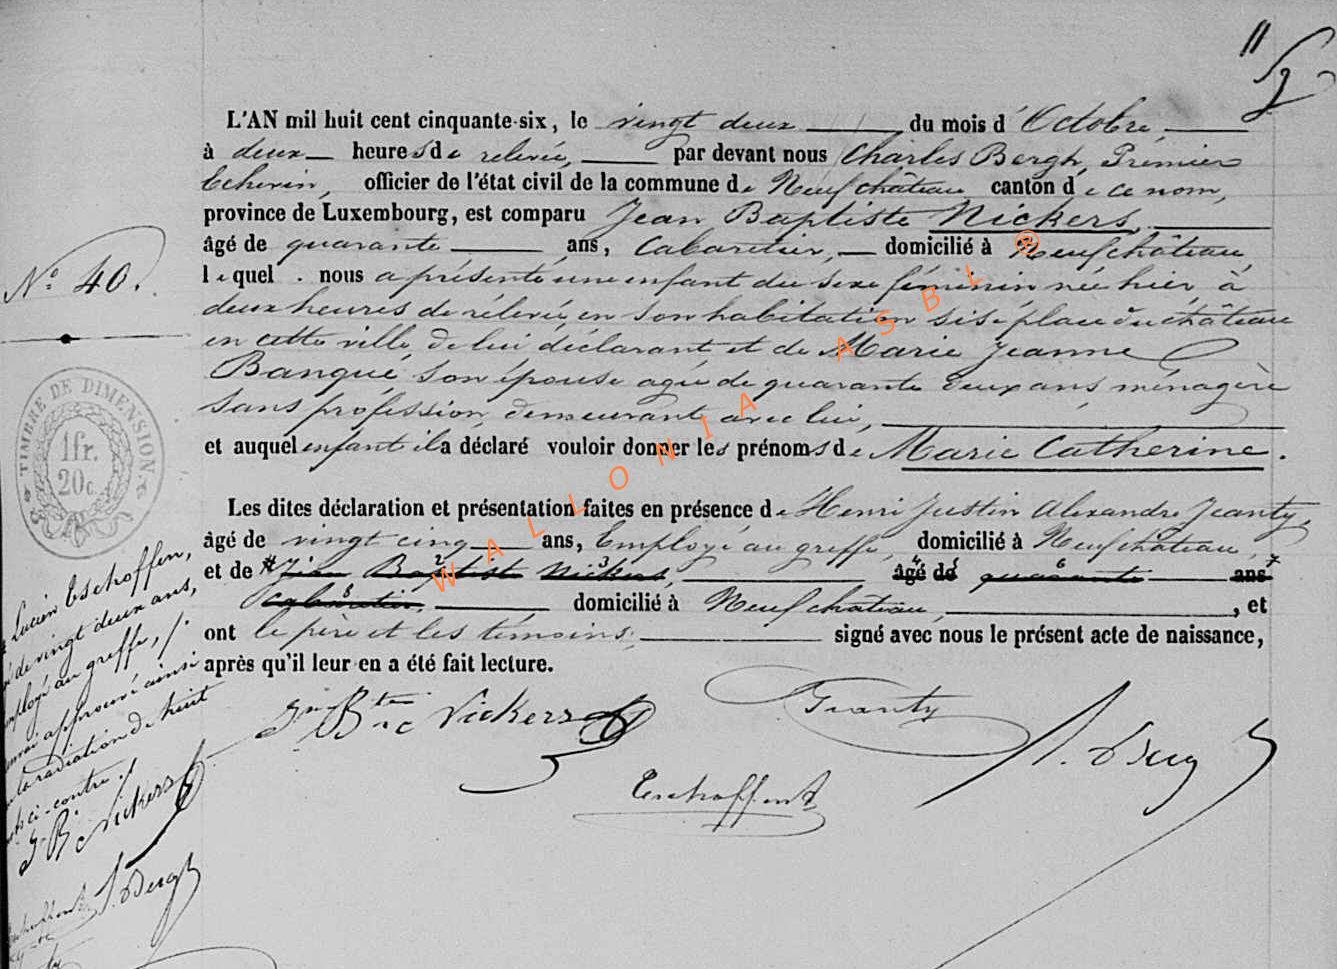 11/2
L'AN mil huit cent cinquante-six, le vingt deux du mois d'Octobre,
à deux heures de relevée, par devant nous Charles Bergh, Prémier
Echevin, officier de l'état civil de la commune de Neufchâteau canton de ce nom,
province de Luxembourg, est comparu Jean Baptiste Nickers,
âgé de quarante ans, Cabaretier, domicilié à Neufchâteau,
lequel nous a présenté une enfant du sexe féminin née hier, à
deux heures de rélévée, en son habitation sise place du château
en cette ville, de lui déclarant et de Marie Jeanne
Banqué, son épouse agée de quarante deux ans, ménagère
sans profession, demeurant avec lui,
et auquel enfant il a déclaré vouloir donner les prénoms de Marie Catherine.
Les dites déclaration et présentation faites en présence de Henri Justin Alexandre Jeanty,
âgé de vingt cinq ans, Employé au greffe, domicilié à Neufchâteau,
et de Jean Baptiste Nickers, âgé de quarante ans
Cabaretier, domicilié à Neufchâteau, et
ont le père et les témoins, signé avec nous le présent acte de naissance,
après qu'il leur en a été fait lecture.
Jn Bte Nickers
Jeanty
Eschoffen
N° 40.
TIMBRE DE DIMENSION
1fr.
20c.
Lucien Eschoffen,
de vingt deux ans,
employé au greffe,
approuvé ainsi
la radiation de huit
ci-contre.
J B Nickers
WALLONIA ASBL ®